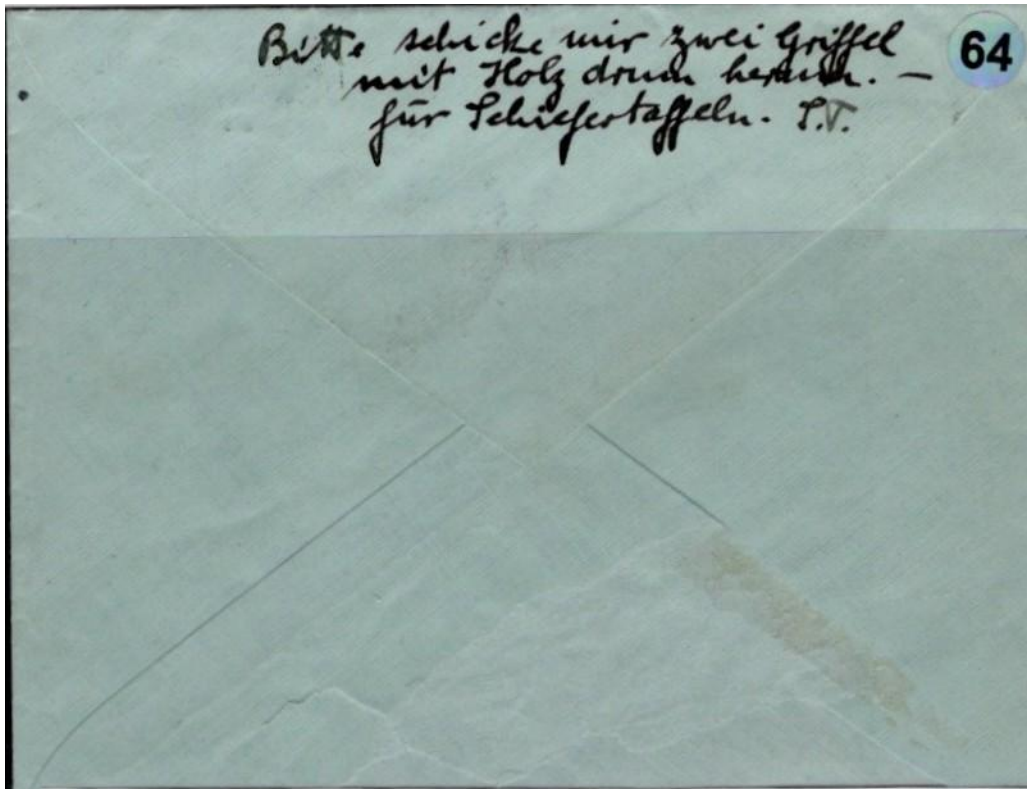 Bitte schicke mir zwei Griffel
mit Holz drum herum. —
für Schiefertaffeln. S.T.
64